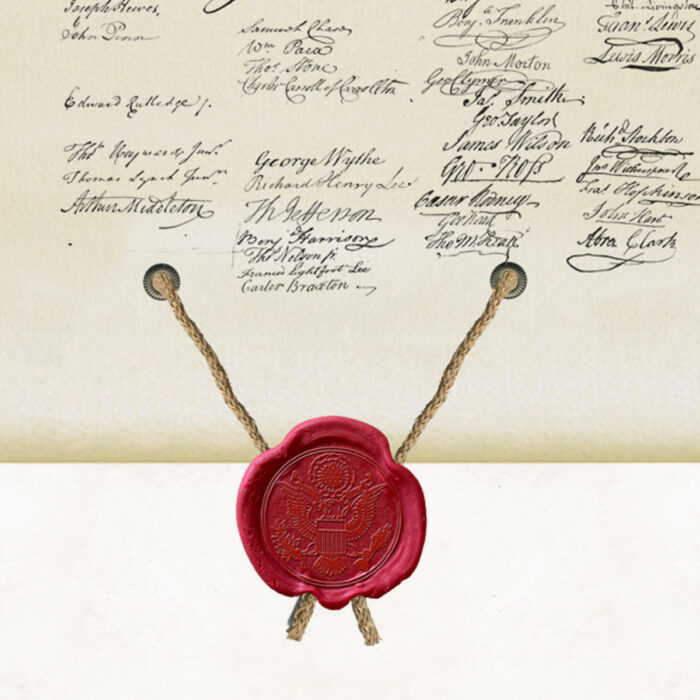 Joseph Hewes,
John Penn
Edward Rutledge /.
Thos Heyward Junr.
Thomas Lynch Junr.
Arthur Middleton
Samuel Chase
Wm. Paca
Thos. Stone
Charles Carroll of Carrollton
George Wythe
Richard Henry Lee
Th Jefferson
Benj Harrison
Thos Nelson jr.
Francis Lightfoot Lee
Carter Braxton
Benj. Franklin
John Morton
Geo Clymer
Jas. Smith
Geo. Taylor
James Wilson
Geo. Ross
Caesar Rodney
Geo Read
Tho M:Kean
Livingston
Frans. Lewis
Lewis Morris
Richd. Stockton
Jno Witherspoon
Fras. Hopkinson
John Hart
Abra Clark